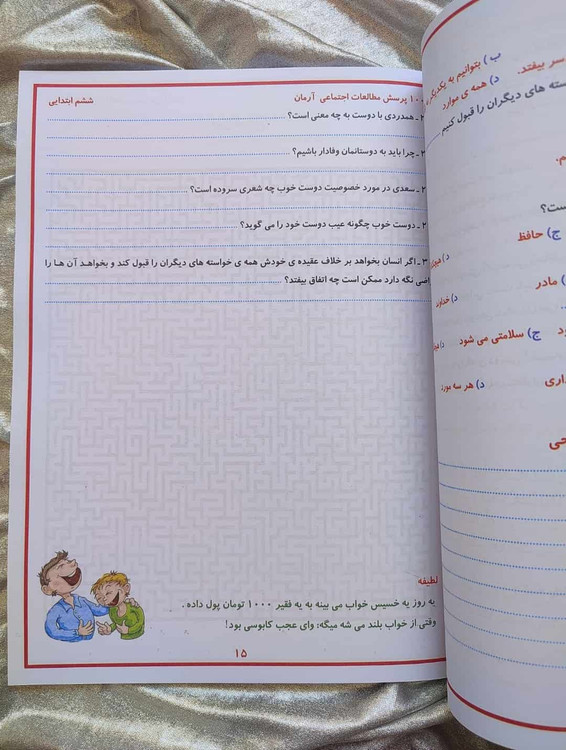 ۱۰۰۰ پرسش مطالعات اجتماعی آرمان ششم ابتدایی
ـ همدردی با دوست به چه معنی است؟
ـ چرا باید به دوستانمان وفادار باشیم؟
ـ سعدی در مورد خصوصیت دوست خوب چه شعری سروده است؟
ـ دوست خوب چگونه عیب دوست خود را می گوید؟
ـ اگر انسان بخواهد بر خلاف عقیده ی خودش همه ی خواسته های دیگران را قبول کند و بخواهد آن ها را
اضی نگه دارد ممکن است چه اتفاق بیفتد؟
لطیفه
یه روز یه خسیس خواب می بینه به یه فقیر ۱۰۰۰ تومان پول داده .
وقتی از خواب بلند می شه میگه: وای عجب کابوسی بود!
۱۵
سر بیفتد. ب) بتوانیم به یکدیگر
د) همه ی موارد
سته های دیگران را قبول کنیم
م.
ست؟
ج) حافظ
) مادر د) خداور
ود ج) سلامتی می شود
داری د) هر سه مورد
حی